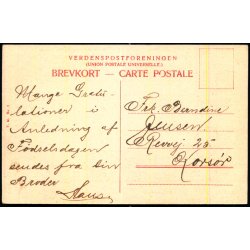 VERDENSPOSTFORENINGEN
(UNION POSTALE UNIVERSELLE)
BREVKORT – CARTE POSTALE
Mange Gratu-
lationer i
Anledning af
Födselsdagen
sendes fra din
Broder
Hans
Frk. Berndine
Jensen
Revvej 25
Korsör